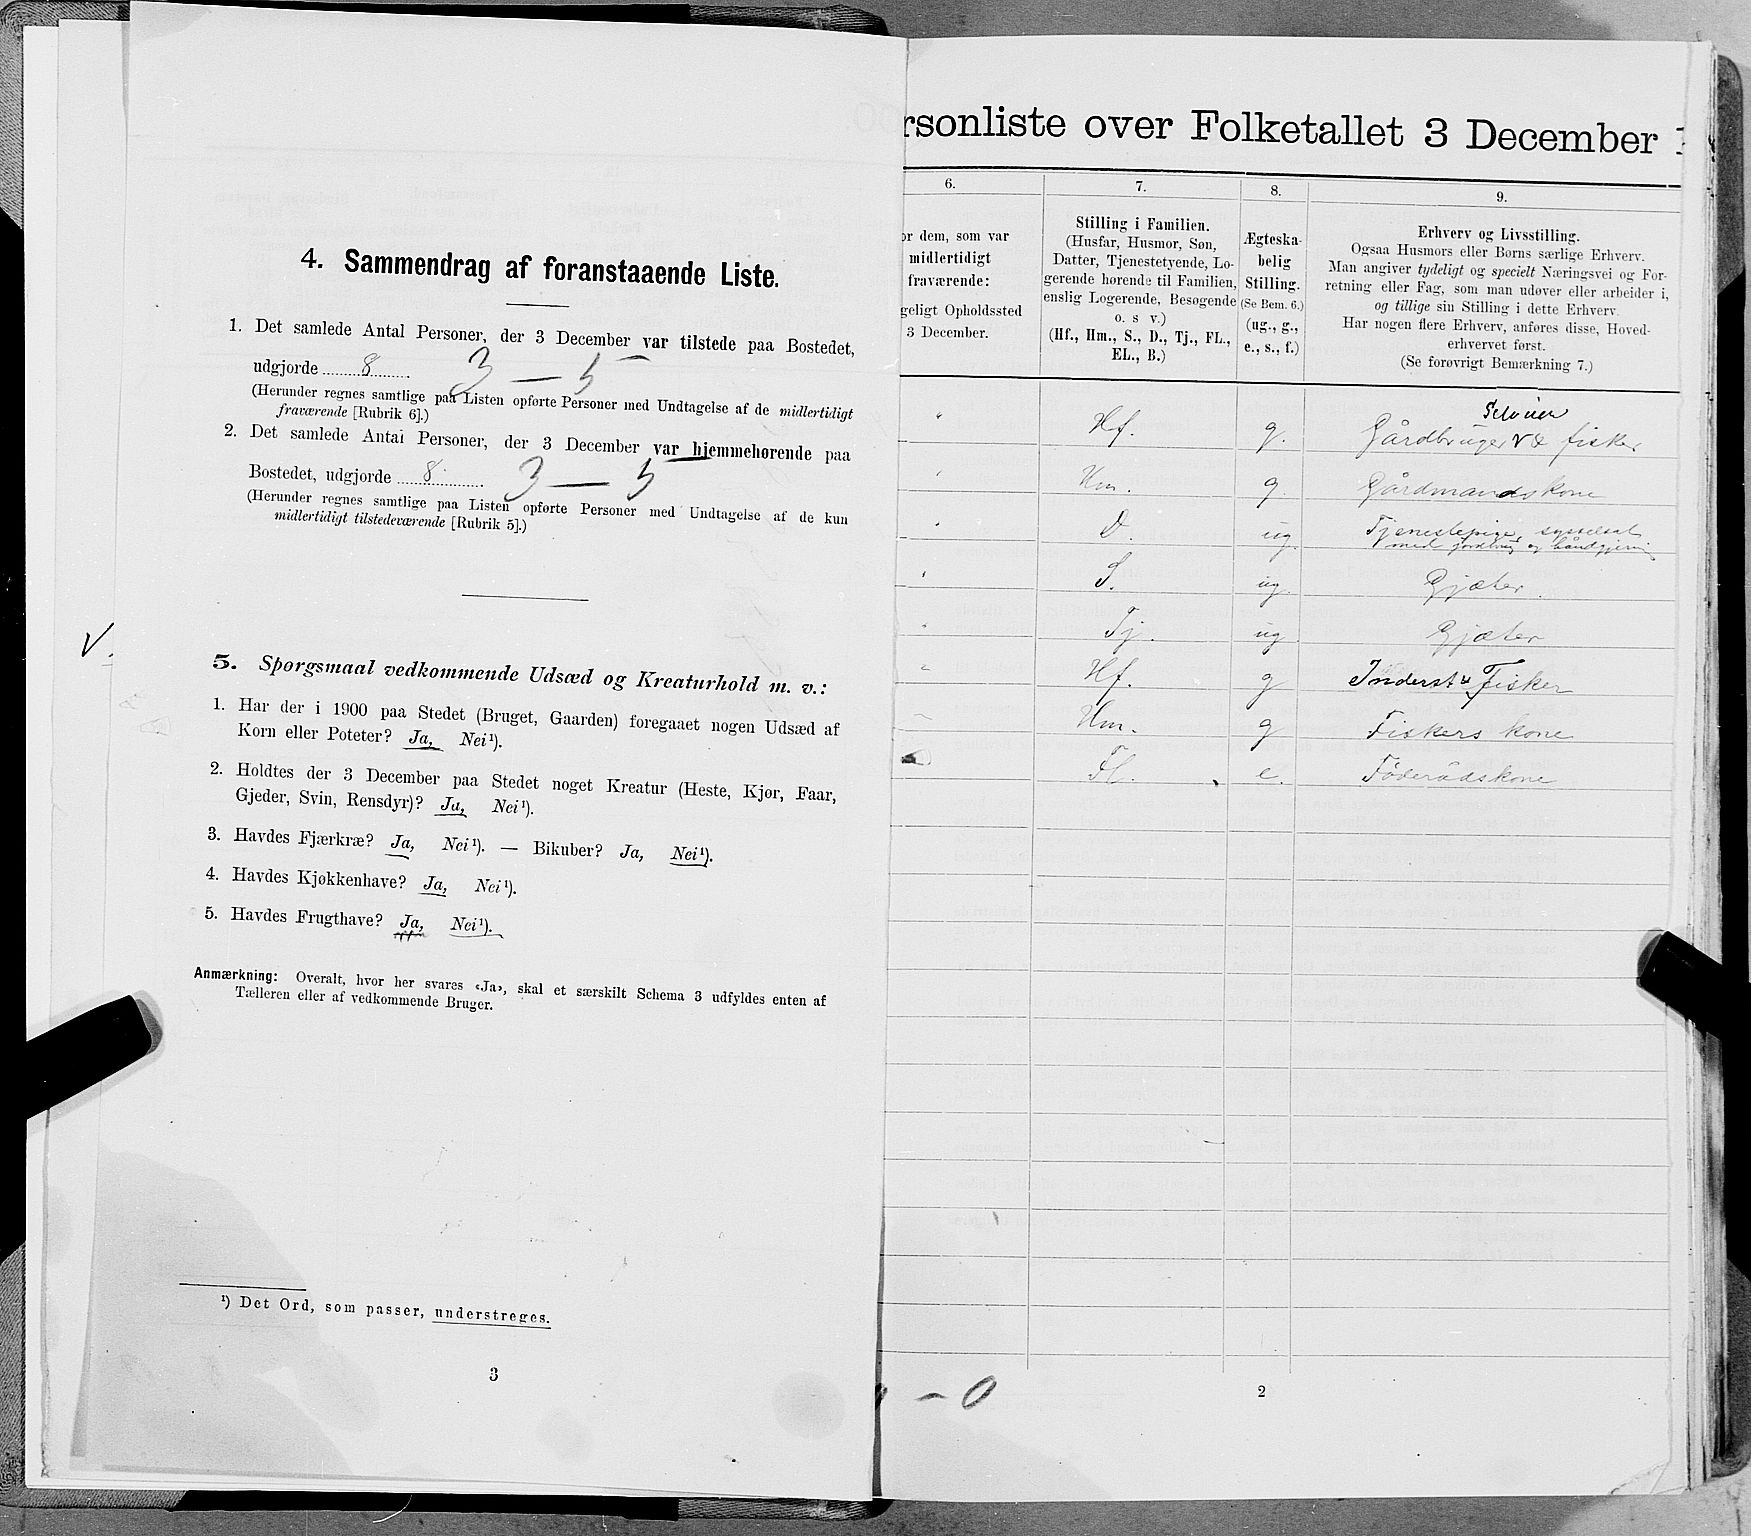 4. Sammendrag af foranstaaende Liste.
1. Det samlede Antal Personer, der 3 December var tilstede paa Bostedet,
udgjorde 8 3 — 5
(Herunder regnes samtlige paa Listen opførte Personer med Undtagelse af de midlertidigt
fraværende [Rubrik 6].)
2. Det samlede Antal Personer, der 3 December var hjemmehørende paa
Bostedet, udgjorde 8 3 — 5
(Herunder regnes samtlige paa Listen opførte Personer med Undtagelse af de kun
midlertidigt tilstedeværende [Rubrik 5].)
V.
5. Spørgsmaal vedkommende Udsæd og Kreaturhold m. v.:
1. Har der i 1900 paa Stedet (Bruget, Gaarden) foregaaet nogen Udsæd af
Korn eller Poteter? Ja, Nei¹).
2. Holdtes der 3 December paa Stedet noget Kreatur (Heste, Kjør, Faar,
Gjeder, Svin, Rensdyr)? Ja, Nei¹).
3. Havdes Fjærkræ? Ja, Nei¹). — Bikuber? Ja, Nei¹).
4. Havdes Kjøkkenhave? Ja, Nei¹).
5. Havdes Frugthave? Ja, Nei¹).
Anmærkning: Overalt, hvor her svares «Ja», skal et særskilt Schema 3 udfyldes enten af
Tælleren eller af vedkommende Bruger.
¹) Det Ord, som passer, understreges.
3
rsonliste over Folketallet 3 December
6.
or dem, som var
midlertidigt
fraværende:
geligt Opholdssted
3 December.
7.
Stilling i Familien.
(Husfar, Husmor, Søn,
Datter, Tjenestetyende, Lo-
gerende hørende til Familien,
enslig Logerende, Besøgende
o. s. v.)
(Hf., Hm., S., D., Tj., FL.,
EL., B.)
8.
Ægteska-
belig
Stilling.
(Se Bem. 6.)
(ug., g.,
e., s., f.)
9.
Erhverv og Livsstilling.
Ogsaa Husmors eller Børns særlige Erhverv.
Man angiver tydeligt og specielt Næringsvei og For-
retning eller Fag, som man udøver eller arbeider i,
og tillige sin Stilling i dette Erhverv.
Har nogen flere Erhverv, anføres disse, Hoved-
erhvervet først.
(Se forøvrigt Bemærkning 7.)
" Hf. g. Gårdbruger fisker
" Hm. g. Gårdmandskone
" D. ug. Tjenestepige, sysselsat
med jordbrug og håndgjerning
" S. ug. Gjæter.
" Tj. ug Gjæter
" Hf. g Inderst & Fisker
" Hm. g Fiskers kone
Fl. e. Føderådskone
– 0
2